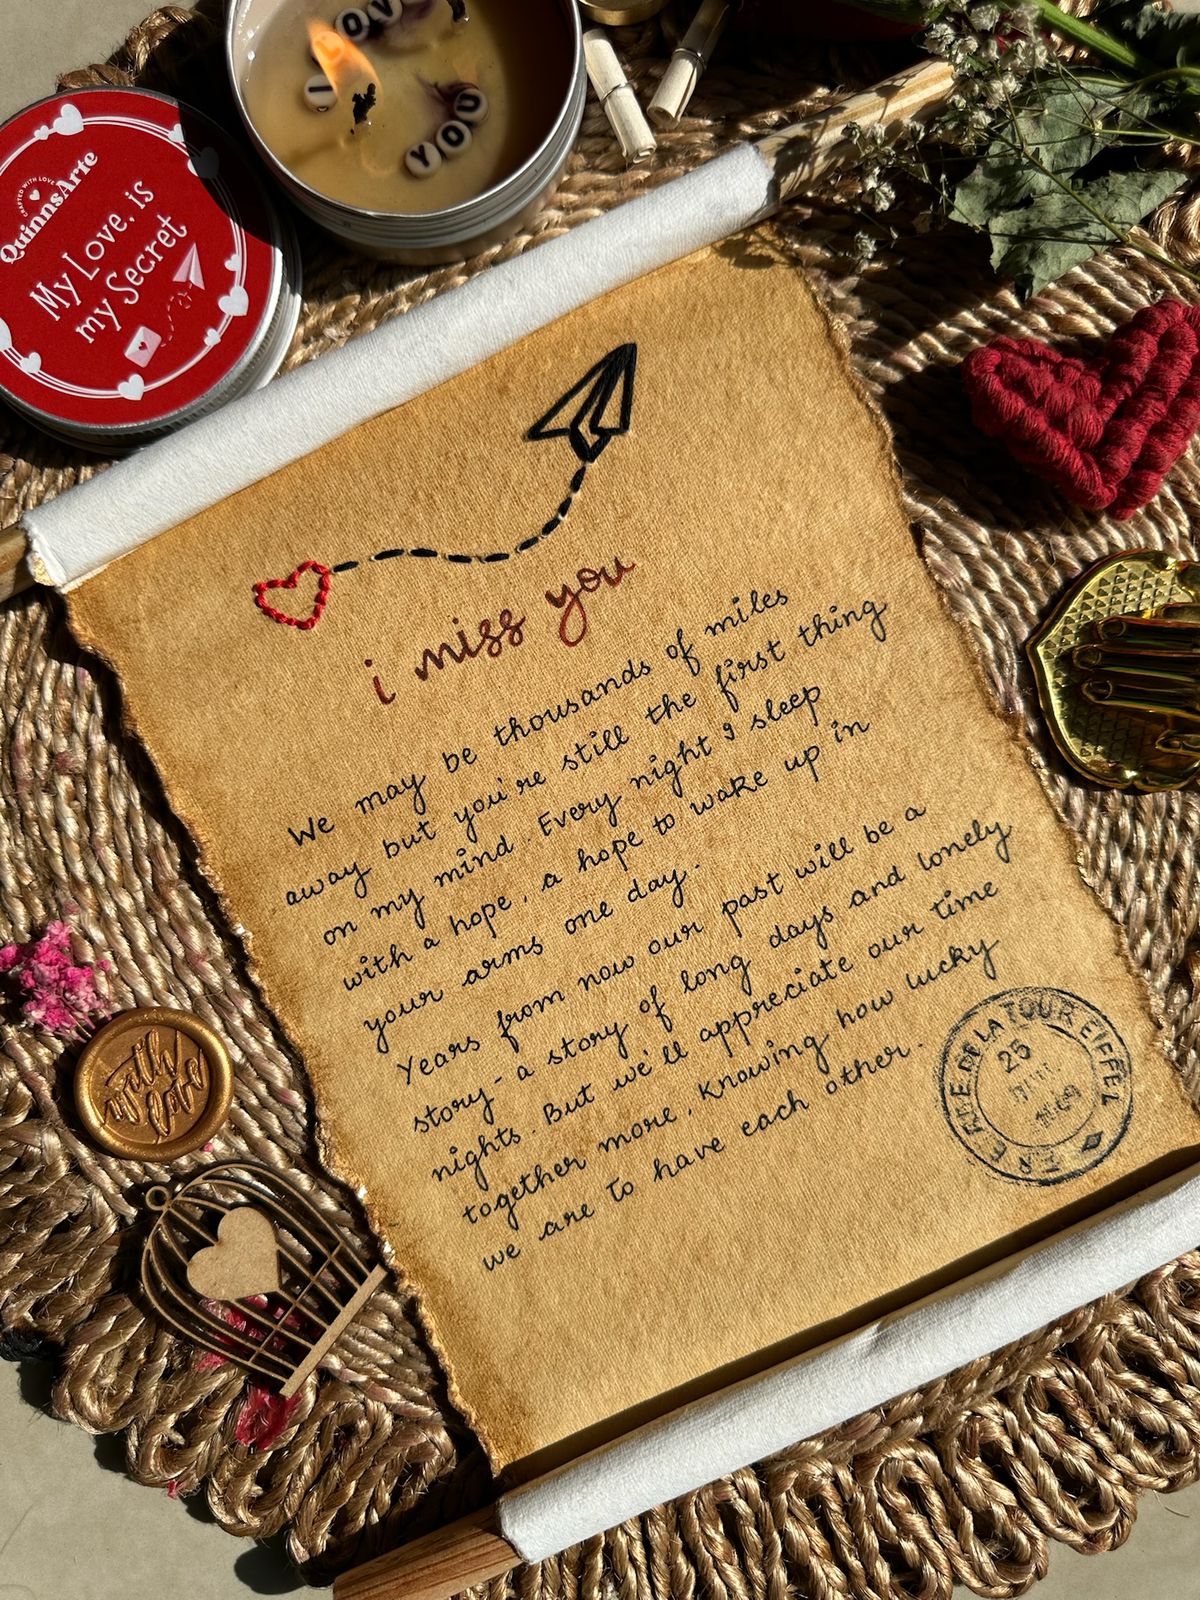 I
LOV
YOU
CRAFTED WITH LOVE
QuinnsArte
My Love, is
my Secret
i miss you
We may be thousands of miles
away but you're still the first thing
on my mind. Every night I sleep
with a hope, a hope to wake up in
your arms one day.
Years from now our past will be a
story - a story of long days and lonely
nights. But we'll appreciate our time
together more, knowing how lucky
we are to have each other.
DE LA TOUR EIFFEL
25
with
love